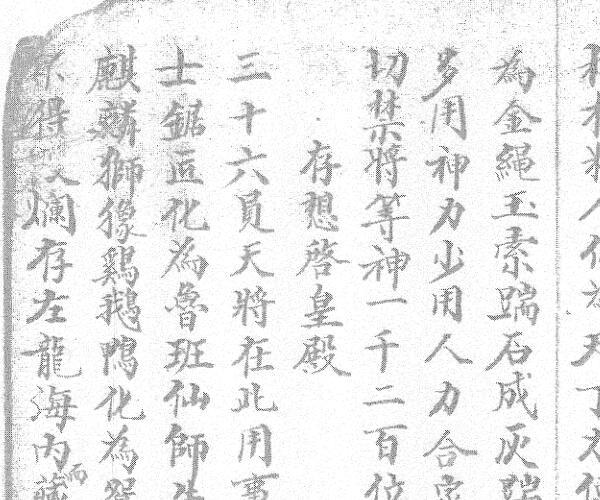 為金繩玉索踹石成灰踹
多用神力少用人力合
切禁將等神一千二百位
存想啓皇殿
三十六員天將在此用事
士鋸匠化為魯班仙師
麒麟獅㺄鷄鵝鴨化為
得爛存左龍海內藏